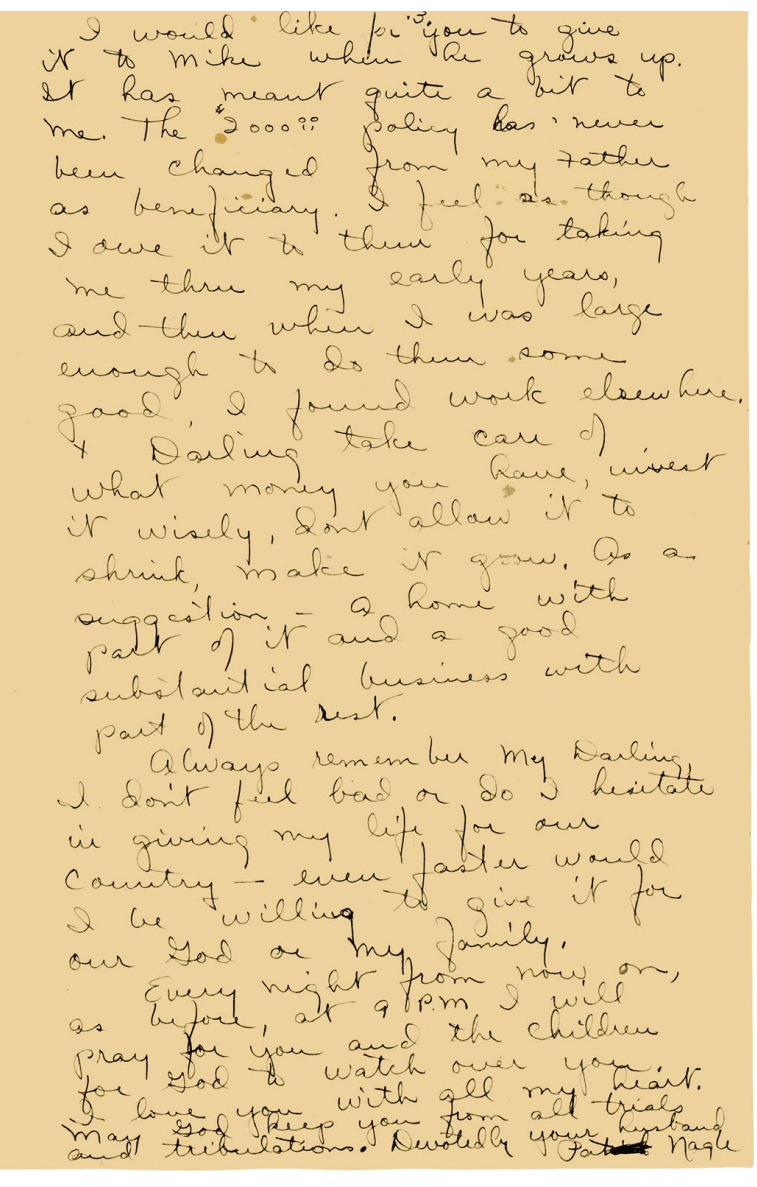 3.
I would like for you to give
it to Mike when he grows up.
It has meant quite a bit to
me. The $2000.00 policy has never
been changed from my Father
as beneficiary. I feel as though
I owe it to them for taking
me thru my early years,
and then when I was large
enough to do them some
good, I found work elsewhere.
+ Darling take care of
what money you have, invest
it wisely, dont allow it to
shrink, make it grow. As a
suggestion – a home with
part of it and a good
substantial business with
part of the rest.
Always remember My Darling,
I don't feel bad or do I hesitate
in giving my life for our
Country – even faster would
I be willing to give it for
our God or my family.
Every night from now on,
as before, at 9 P.M I will
pray for you and the children
for God to watch over you.
I love you with all my heart.
May God keep you from all trials
and tribulations. Devotedly your husband
Patrick Nagle